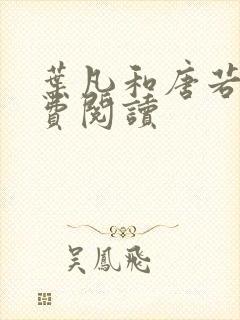 葉凡和唐若
費閱讀
吳鳳飛